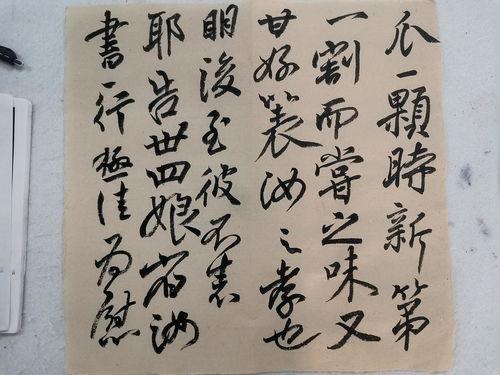 瓜一顆時新第
一割而嘗之味又
甘好汝之孝也
明後至彼不悉
耶告卅四娘省汝
書行極佳為慰